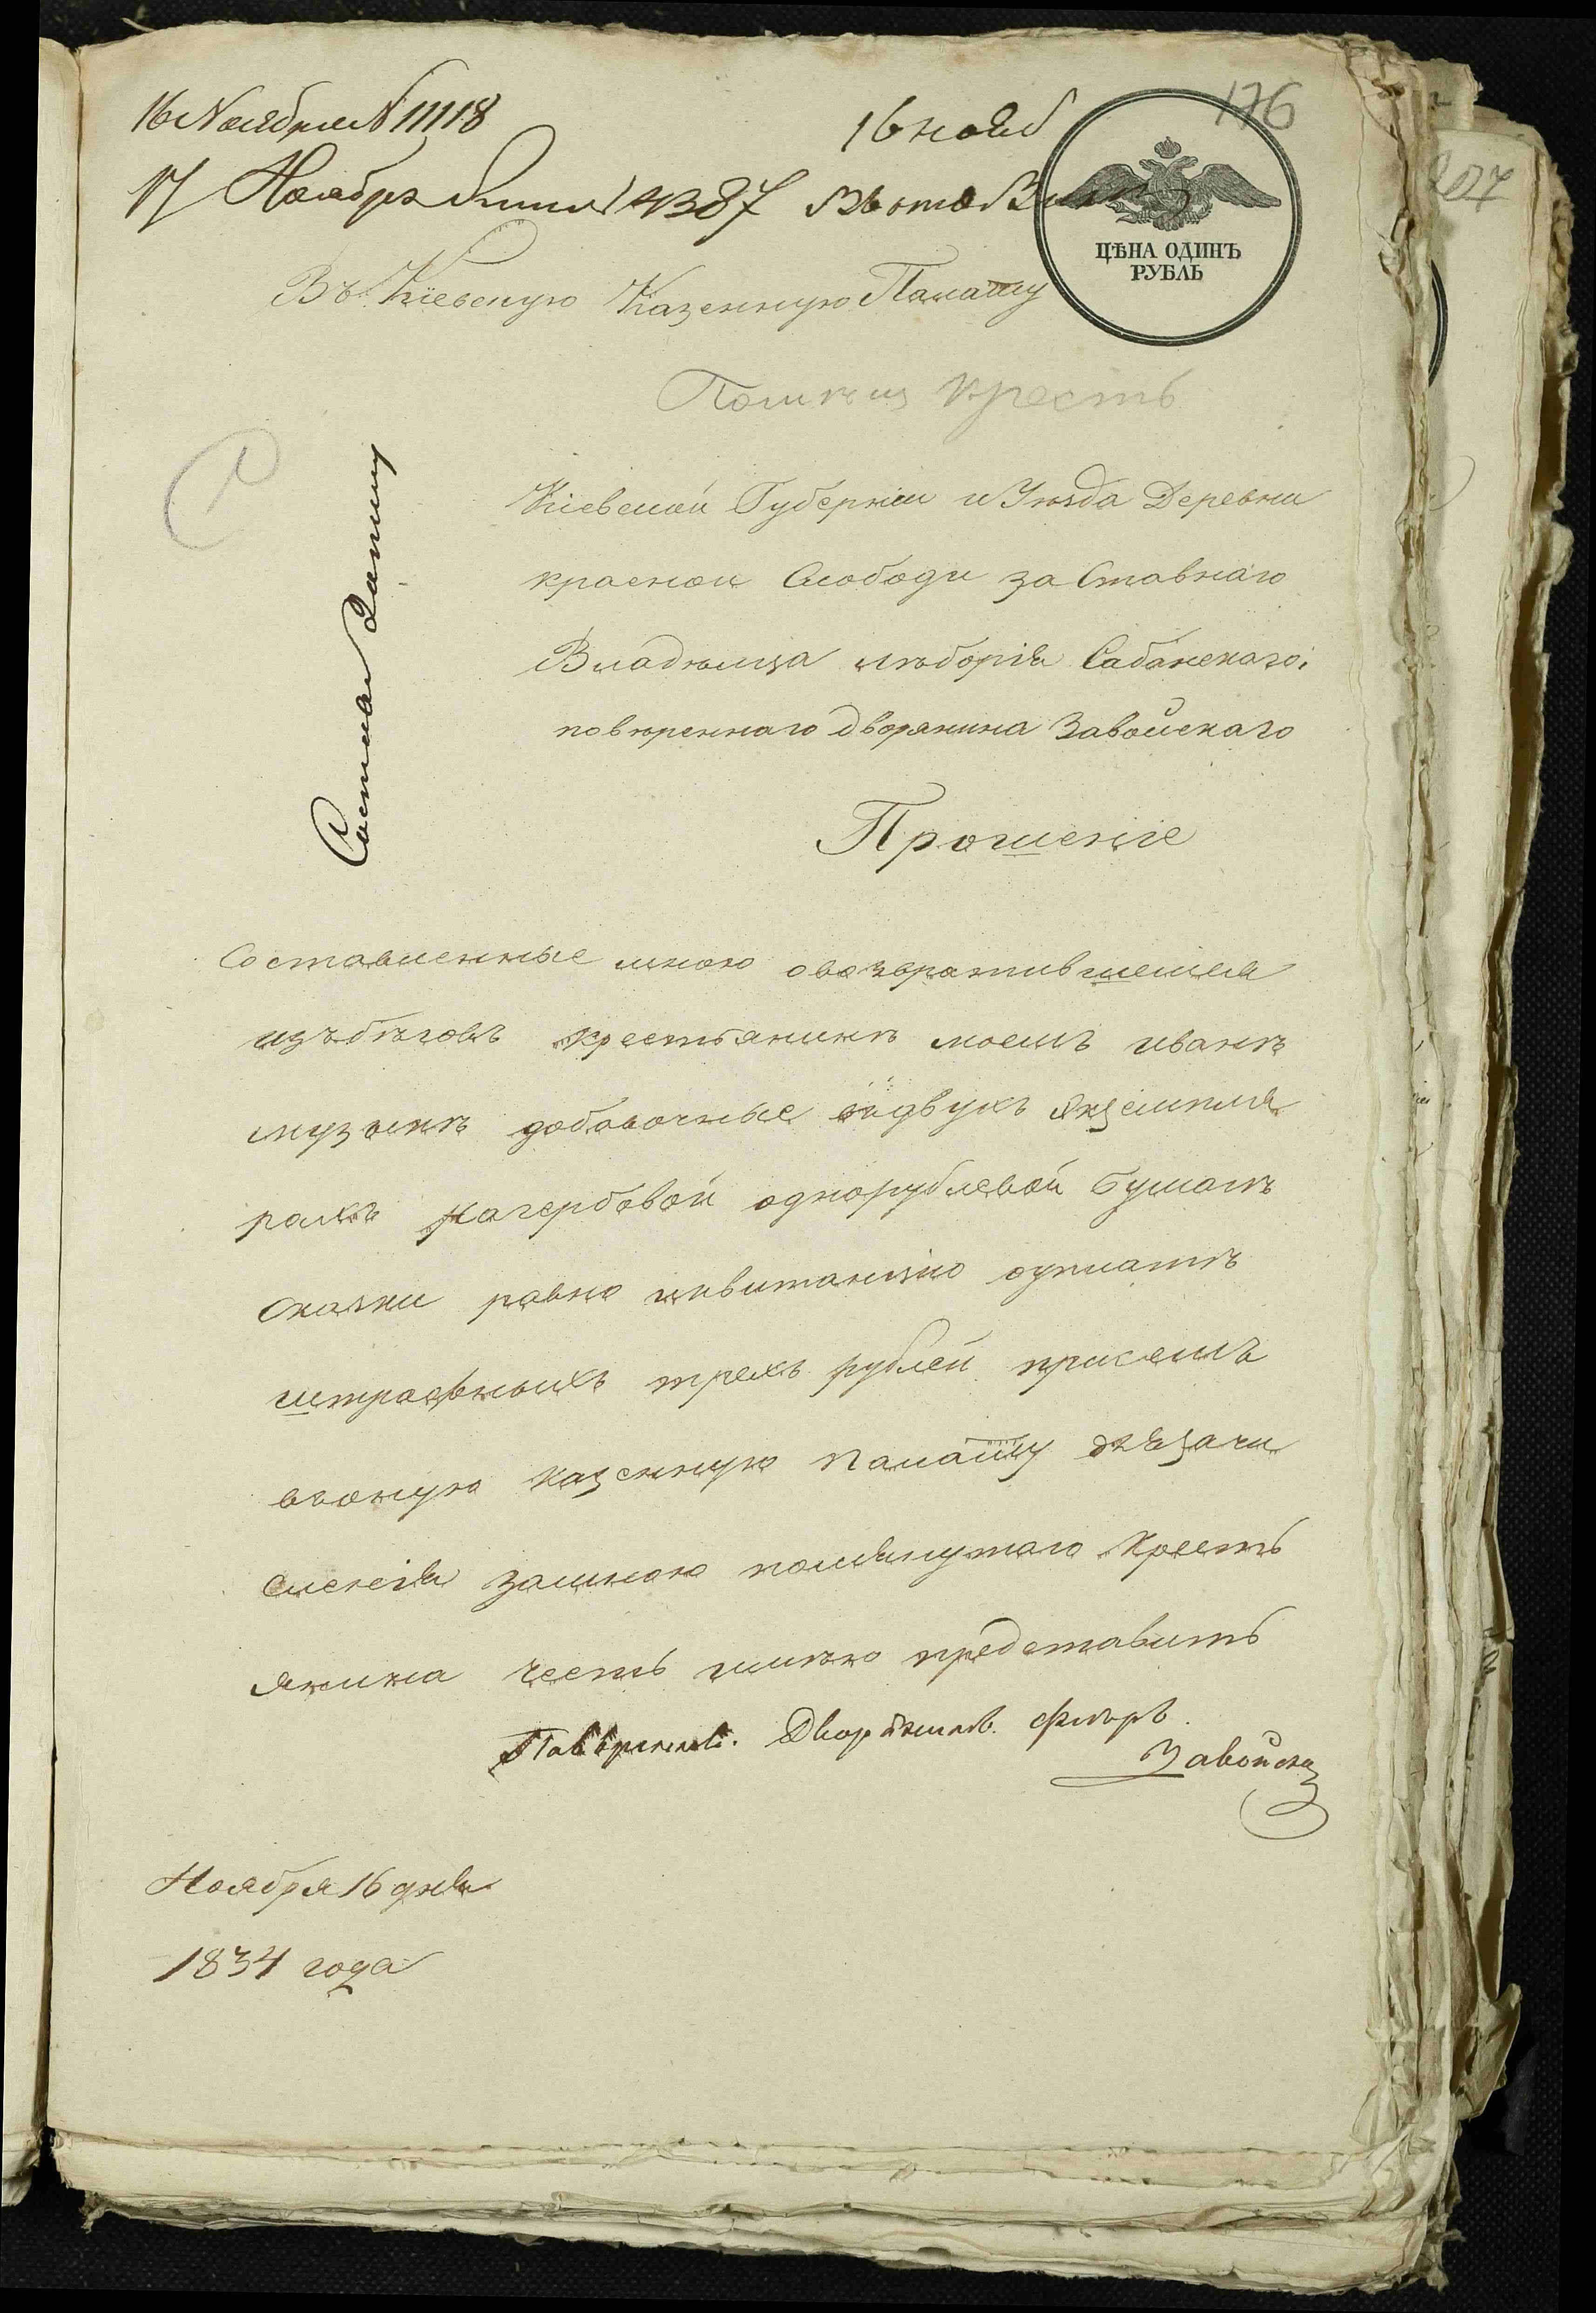 16 Ноября № 11118
16 нояб
176
17 Ноября 4387
ЦѢНА ОДИНЪ
РУБЛЬ
Въ Кіевскую Казенную Палату
Помѣщ крестъ
Кіевской Губерніи и Уѣзда Деревни
красной Слободи за Ставнаго
Владѣльца
Сабанскаго
повѣреннаго дворянина Завойскаго
Прошеніе
Составленные мною овозвратившемся
изъбѣговъ крестьянинѣ моемъ иванѣ
музыкѣ добавочные въдвухъ экземпля
рахъ нагербовой однорублевой бумагѣ
сказки равно иквитанцію оуплатѣ
штрафныхъ трехъ рублей присемъ
ввоную казенную палату длязачи
сленія замною помянутаго кресть
янина честь имѣю представить
Повѣренный Дворянинъ
Завойски
Ноября 16 дня
1834 года
207